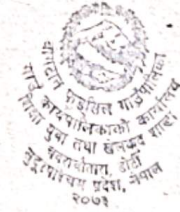 गाउँपालिका
गाउँ कार्यपालिकाको कार्यालय
शिक्षा युवा तथा खेलकुद शाखा
डोटी
सुदूरपश्चिम प्रदेश, नेपाल
२०७३